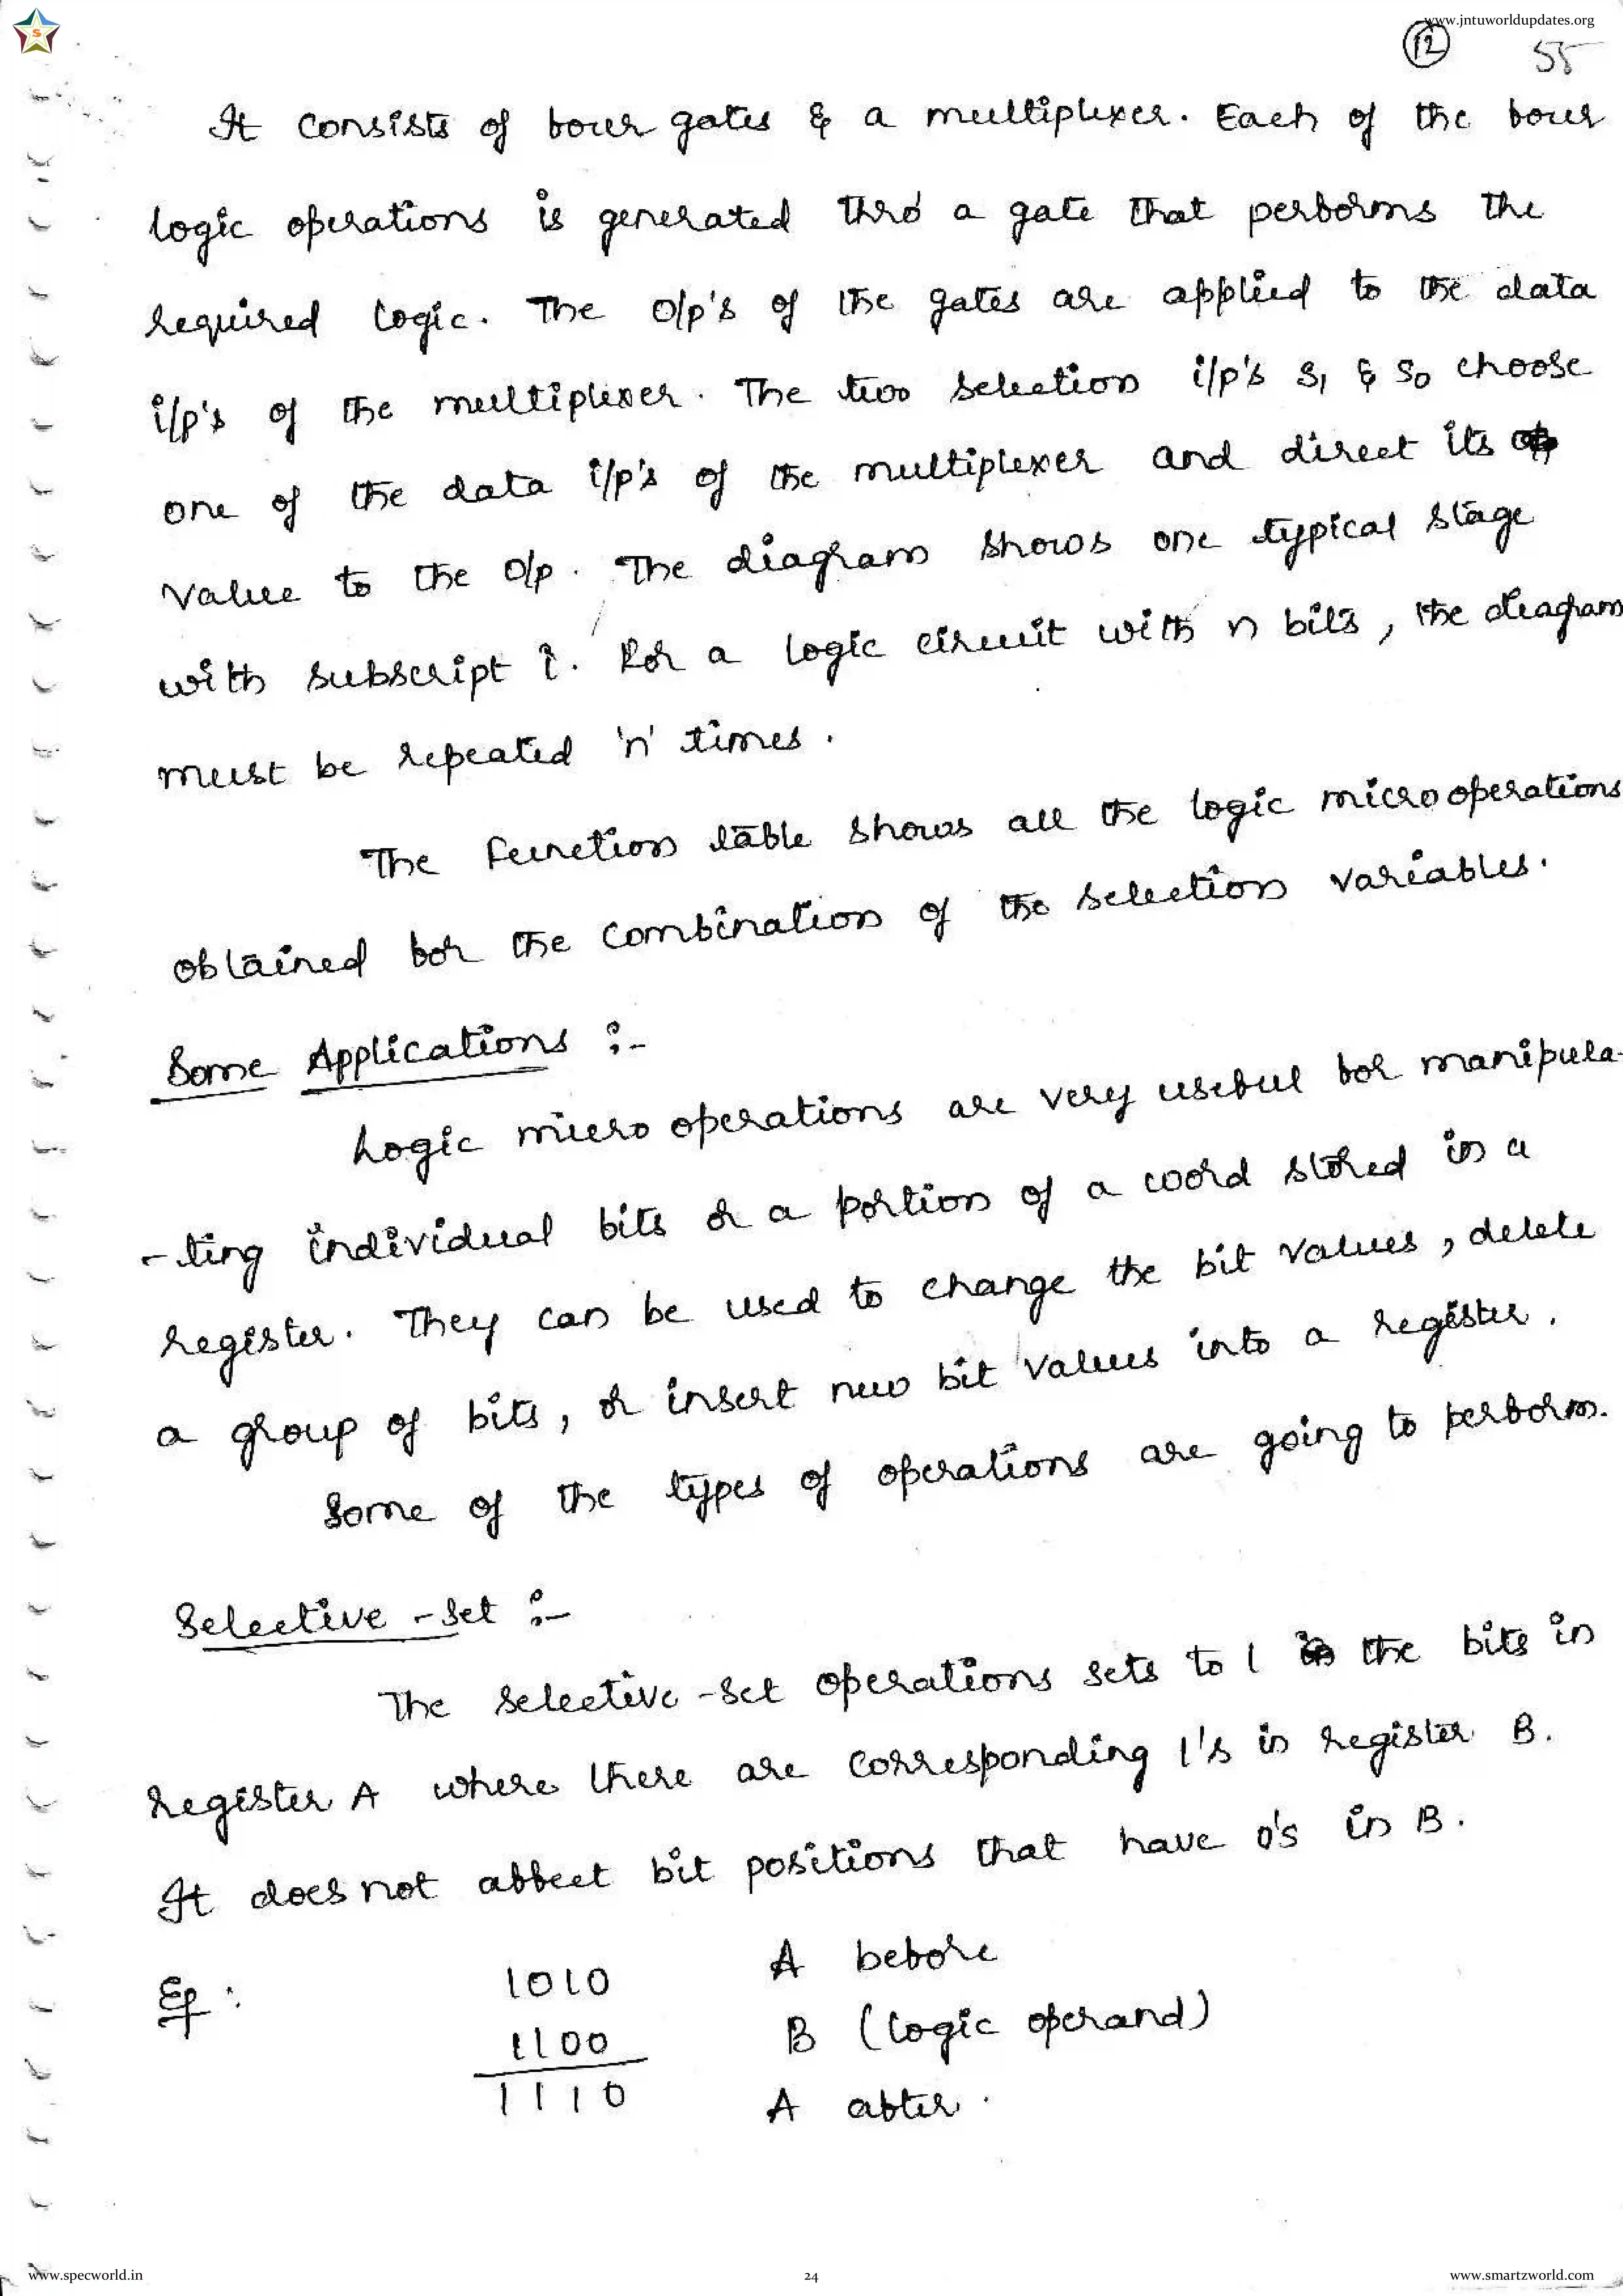 www.jntuworldupdates.org
12 55
It consists of four gates & a multiplexer. Each of the four
logic operations is generated thro' a gate that performs the
required logic. The o/p's of the gates are applied to the data
i/p's of the multiplexer. The two selection i/p's S1 & S0 choose
one of the data i/p's of the multiplexer and direct its
value to the o/p. The diagram shows one typical stage
with subscript i. For a logic circuit with n bits, the diagram
must be repeated 'n' times.
The function table shows all the logic microoperations
obtained for the combination of the selection variables.
Some Applications :-
Logic micro operations are very useful for manipula-
-ting individual bits or a portion of a word stored in a
register. They can be used to change the bit values, delete
a group of bits, or insert new bit values into a register.
Some of the types of operations are going to perform.
Selective-set :-
The selective-set operations sets to 1 the bits in
register A where there are corresponding 1's in register B.
It does not affect bit positions that have 0's in B.
Eg: 1010 A before
1100 B (logic operand)
1110 A after.
www.specworld.in 24 www.smartzworld.com